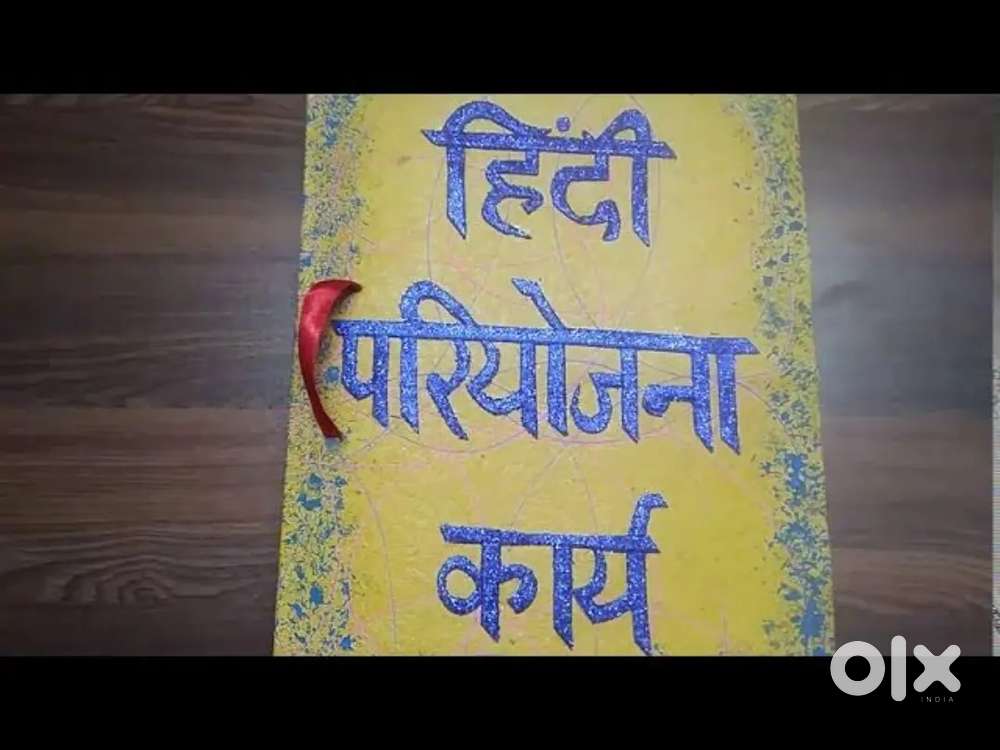 हिंदी
परियोजना
कार्य
olx
INDIA